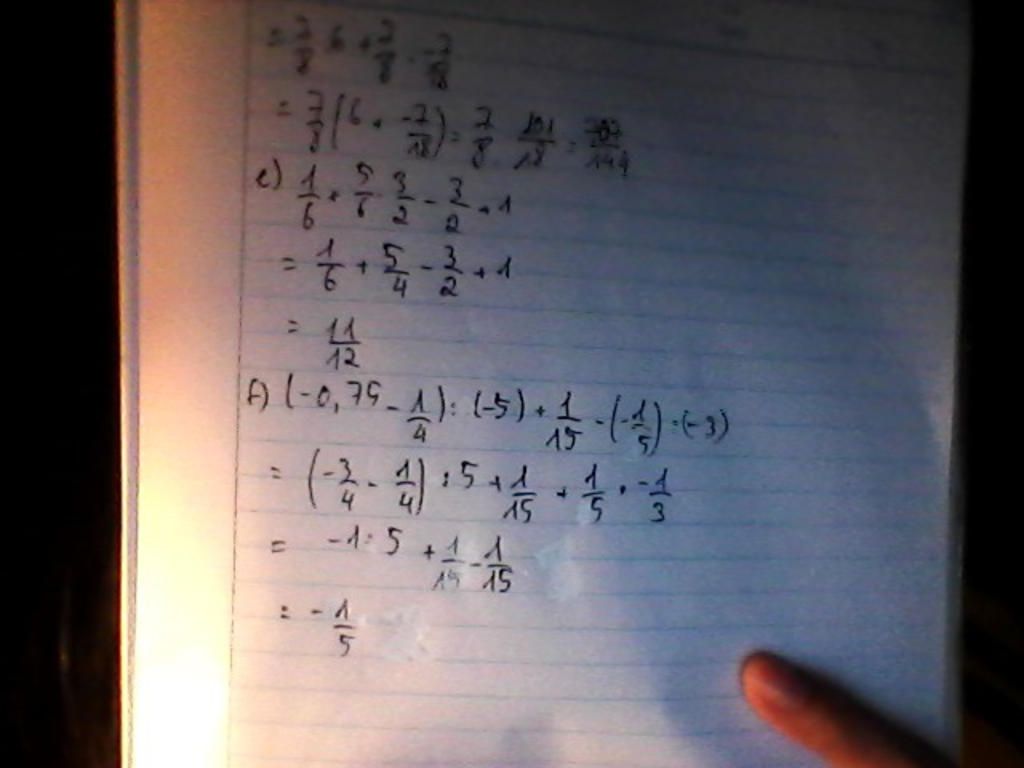 = 7/8 6 + 7/8 · -7/18
= 7/8 (6 + -7/18) = 7/8 101/18 = 707/144
e) 1/6 + 5/6 3/2 - 3/2 + 1
= 1/6 + 5/4 - 3/2 + 1
= 11/12
f) (-0,75 - 1/4) : (-5) + 1/15 - (-1/5) : (-3)
= (-3/4 - 1/4) : 5 + 1/15 + 1/5 · -1/3
= -1 : 5 + 1/15 - 1/15
= - 1/5